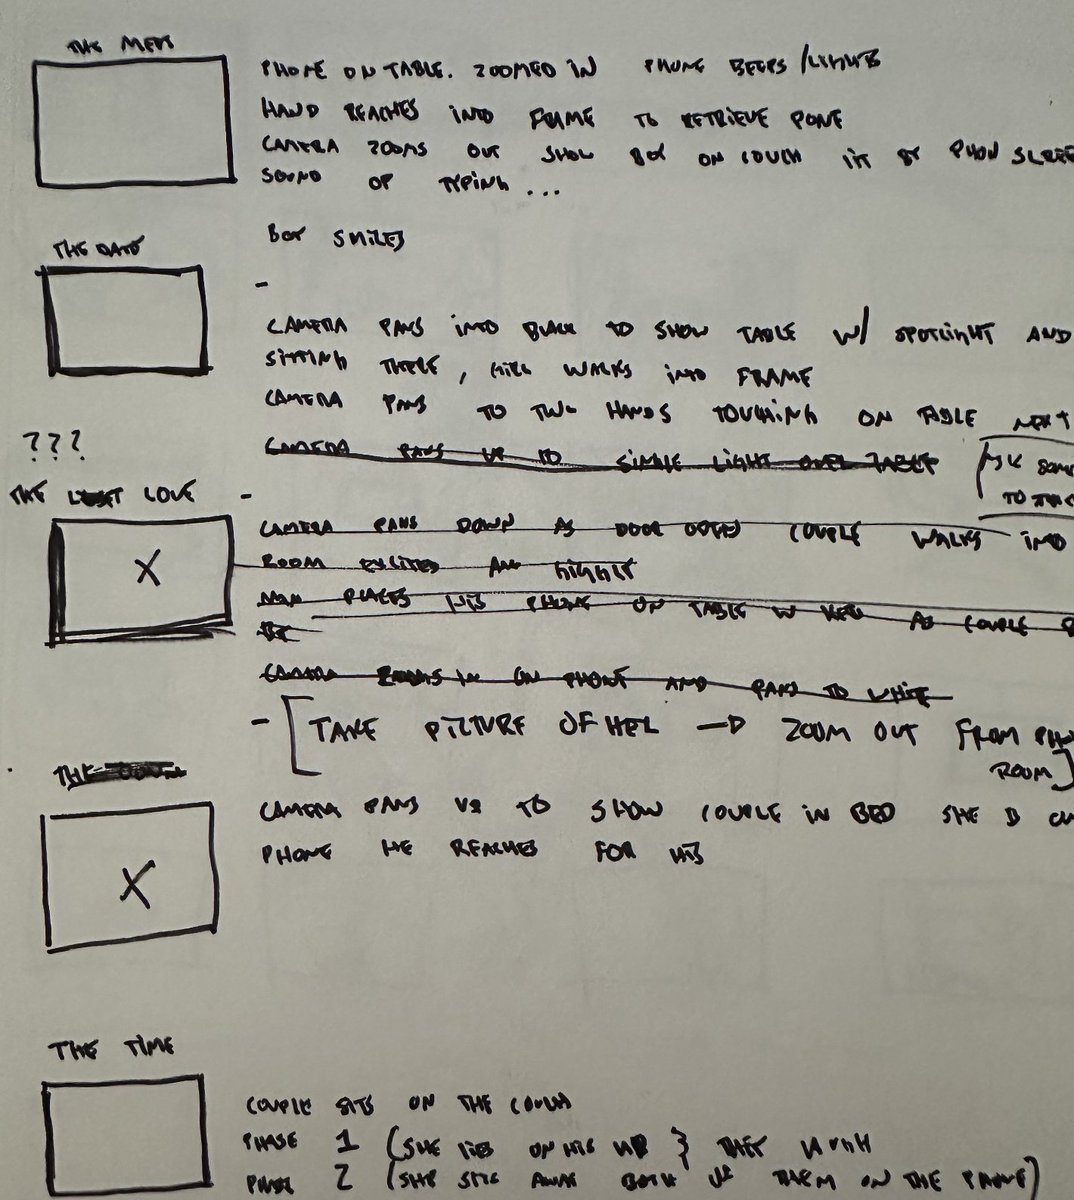 THE MEET
PHONE ON TABLE. ZOOMED IN PHONE BEEPS/LIGHTS
HAND REACHES INTO FRAME TO RETRIEVE PONE
CAMERA ZOOMS OUT SHOW BOY ON COUCH LIT BY PHON SCREE
SOUND OF TYPING...
THE DATE
BOY SMILES
-
CAMERA PANS INTO BLACK TO SHOW TABLE W/ SPOTLIGHT AND
SITTING THERE, GIRL WALKS INTO FRAME
CAMERA PANS TO TWO HANDS TOUCHING ON TABLE NEXT
CAMERA PANS UP TO SINGLE LIGHT OVER TABLE
???
THE LOVE -
CAMERA PANS DOWN AS DOOR OPENS COUPLE WALKS INTO
ROOM EXCITED AND
MAN PLACES HIS PHONE ON TABLE W KEYS AS COUPLE
CAMERA ZOOMS IN ON PHONE AND PANS TO WHITE
- [TAKE PICTURE OF HER → ZOOM OUT FROM PH
ROOM]
THE
CAMERA PANS UP TO SHOW COUPLE IN BED SHE IS
PHONE HE REACHES FOR HIS
THE TIME
COUPLE SITS ON THE COUCH
PHASE 1 (SHE LIES ON HIS } THEY
PHASE 2 (SHE AWAY BOTH OF THEM ON THE PHONE)
X
X